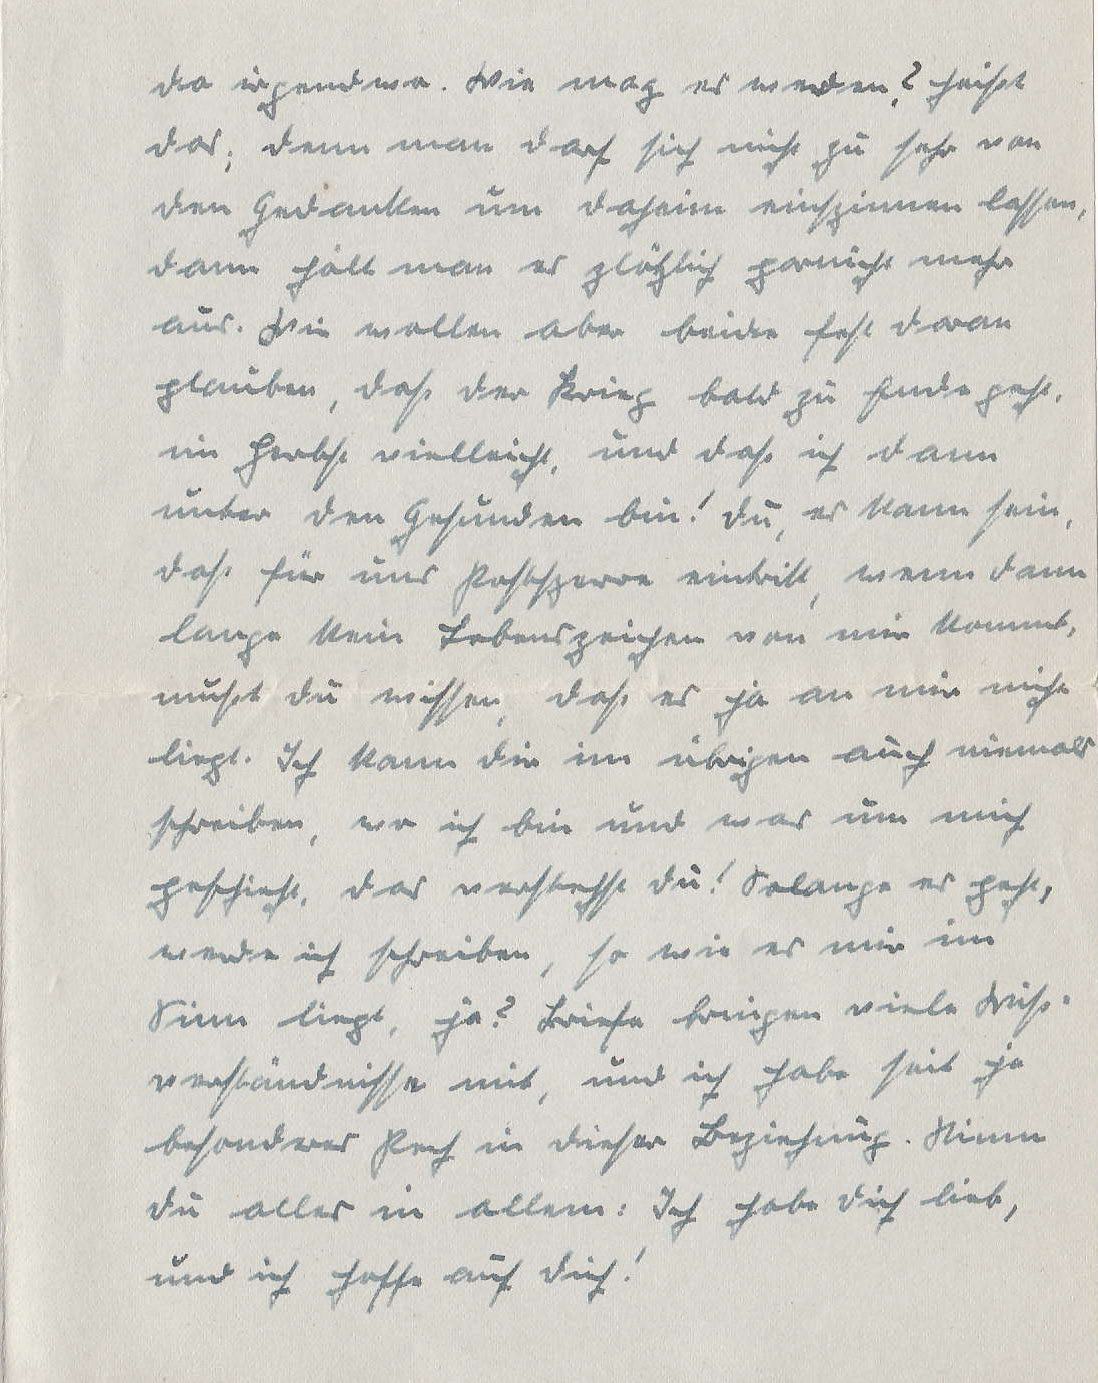 da irgendwo. Wie mag es werden? heißt
das, denn man darf sich nicht zu sehr von
den Gedanken um daheim einspinnen lassen,
dann hält man es plötzlich garnicht mehr
aus. Wir wollen aber beide fest daran
glauben, daß der Krieg bald zu Ende geht,
im Herbst vielleicht, und daß ich dann
unter den Gesunden bin! Du, es kann sein,
daß für uns Postsperre eintritt, wenn dann
lange kein Lebenszeichen von mir kommt,
mußt du wissen, daß es ja an mir nicht
liegt. Ich kann dir im übrigen auch niemals
schreiben, wo ich bin und was um mich
geschieht, das verstehst du! Solange es geht,
werde ich schreiben, so wie es mir im
Sinn liegt, ja? Briefe bringen viele Miß-
verständnisse mit, und ich habe seit je
besonderes Pech in dieser Beziehung. Nimm
du alles in allem: Ich habe dich lieb,
und ich hoffe auf dich!